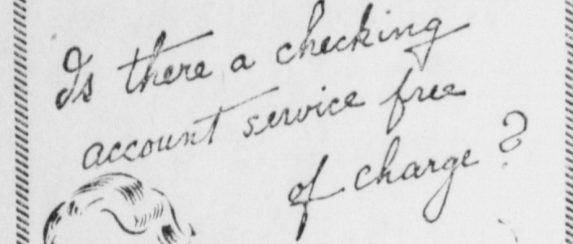 Is there a checking
account service free
of charge?